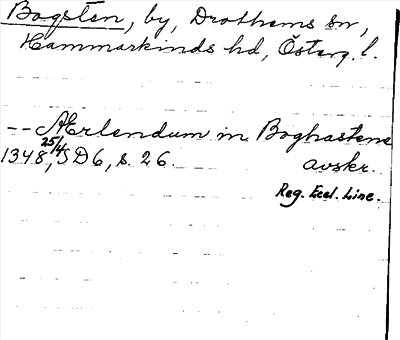 Bogsten, by, Drothems sn,
Hammarkinds hd, Österg. l.
-- Ærlendum in Boghastene
1348 25/4, SD6, s. 26. avskr.
Reg. Eccl. Linc.